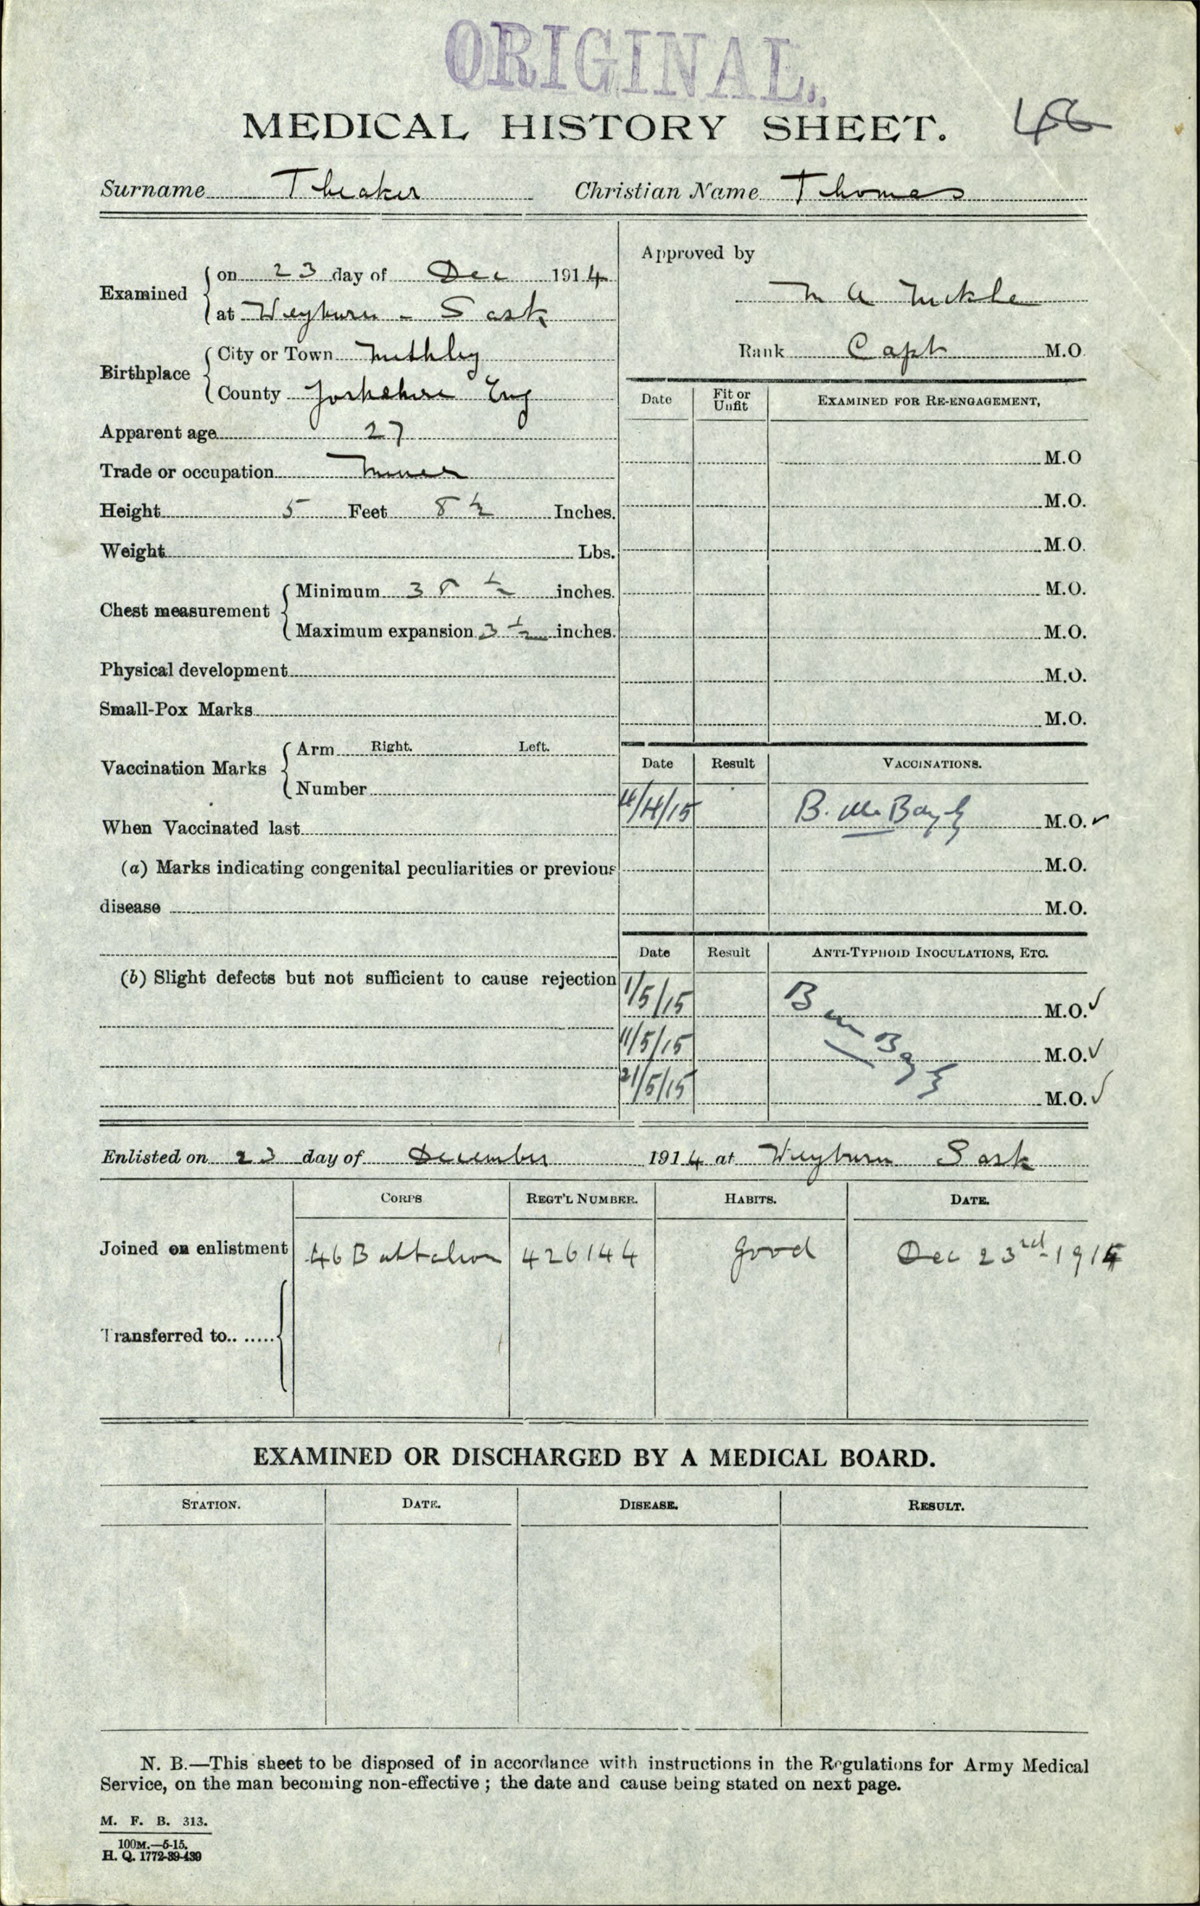 ORIGINAL.
MEDICAL HISTORY SHEET. 46
Surname Theaker Christian Name Thomas
Examined on 23 day of Dec 1914
at Weyburn - Sask
Birthplace City or Town Methley
County Yorkshire Eng
Apparent age 27
Trade or occupation Miner
Height 5 Feet 8 ½ Inches.
Weight Lbs.
Chest measurement Minimum 38 ½ inches.
Maximum expansion 3 ½ inches.
Physical development
Small-Pox Marks
Vaccination Marks Arm Right. Left.
Number
When Vaccinated last
(a) Marks indicating congenital peculiarities or previous
disease
(b) Slight defects but not sufficient to cause rejection
Approved by
M A
Rank Capt M.O
Date Fit or Unfit EXAMINED FOR RE-ENGAGEMENT,
M.O
M.O.
M.O.
M.O.
M.O.
M.O.
M.O.
Date Result VACCINATIONS.
/4/15 B. M.O. ✓
M.O.
M.O.
Date Result ANTI-TYPHOID INOCULATIONS, ETC.
1/5/15 B M.O. ✓
11/5/15 M.O. ✓
21/5/15 M.O. ✓
Enlisted on 23 day of December 1914 at Weyburn Sask
CORPS REGT'L NUMBER. HABITS. DATE.
Joined on enlistment 46 Battalion 426144 good Dec 23rd-1914
Transferred to.. .....
EXAMINED OR DISCHARGED BY A MEDICAL BOARD.
STATION. DATE. DISEASE. RESULT.
N. B.—This sheet to be disposed of in accordance with instructions in the Regulations for Army Medical
Service, on the man becoming non-effective ; the date and cause being stated on next page.
M. F. B. 313.
100M.—5-15.
H. Q. 1772-39-439